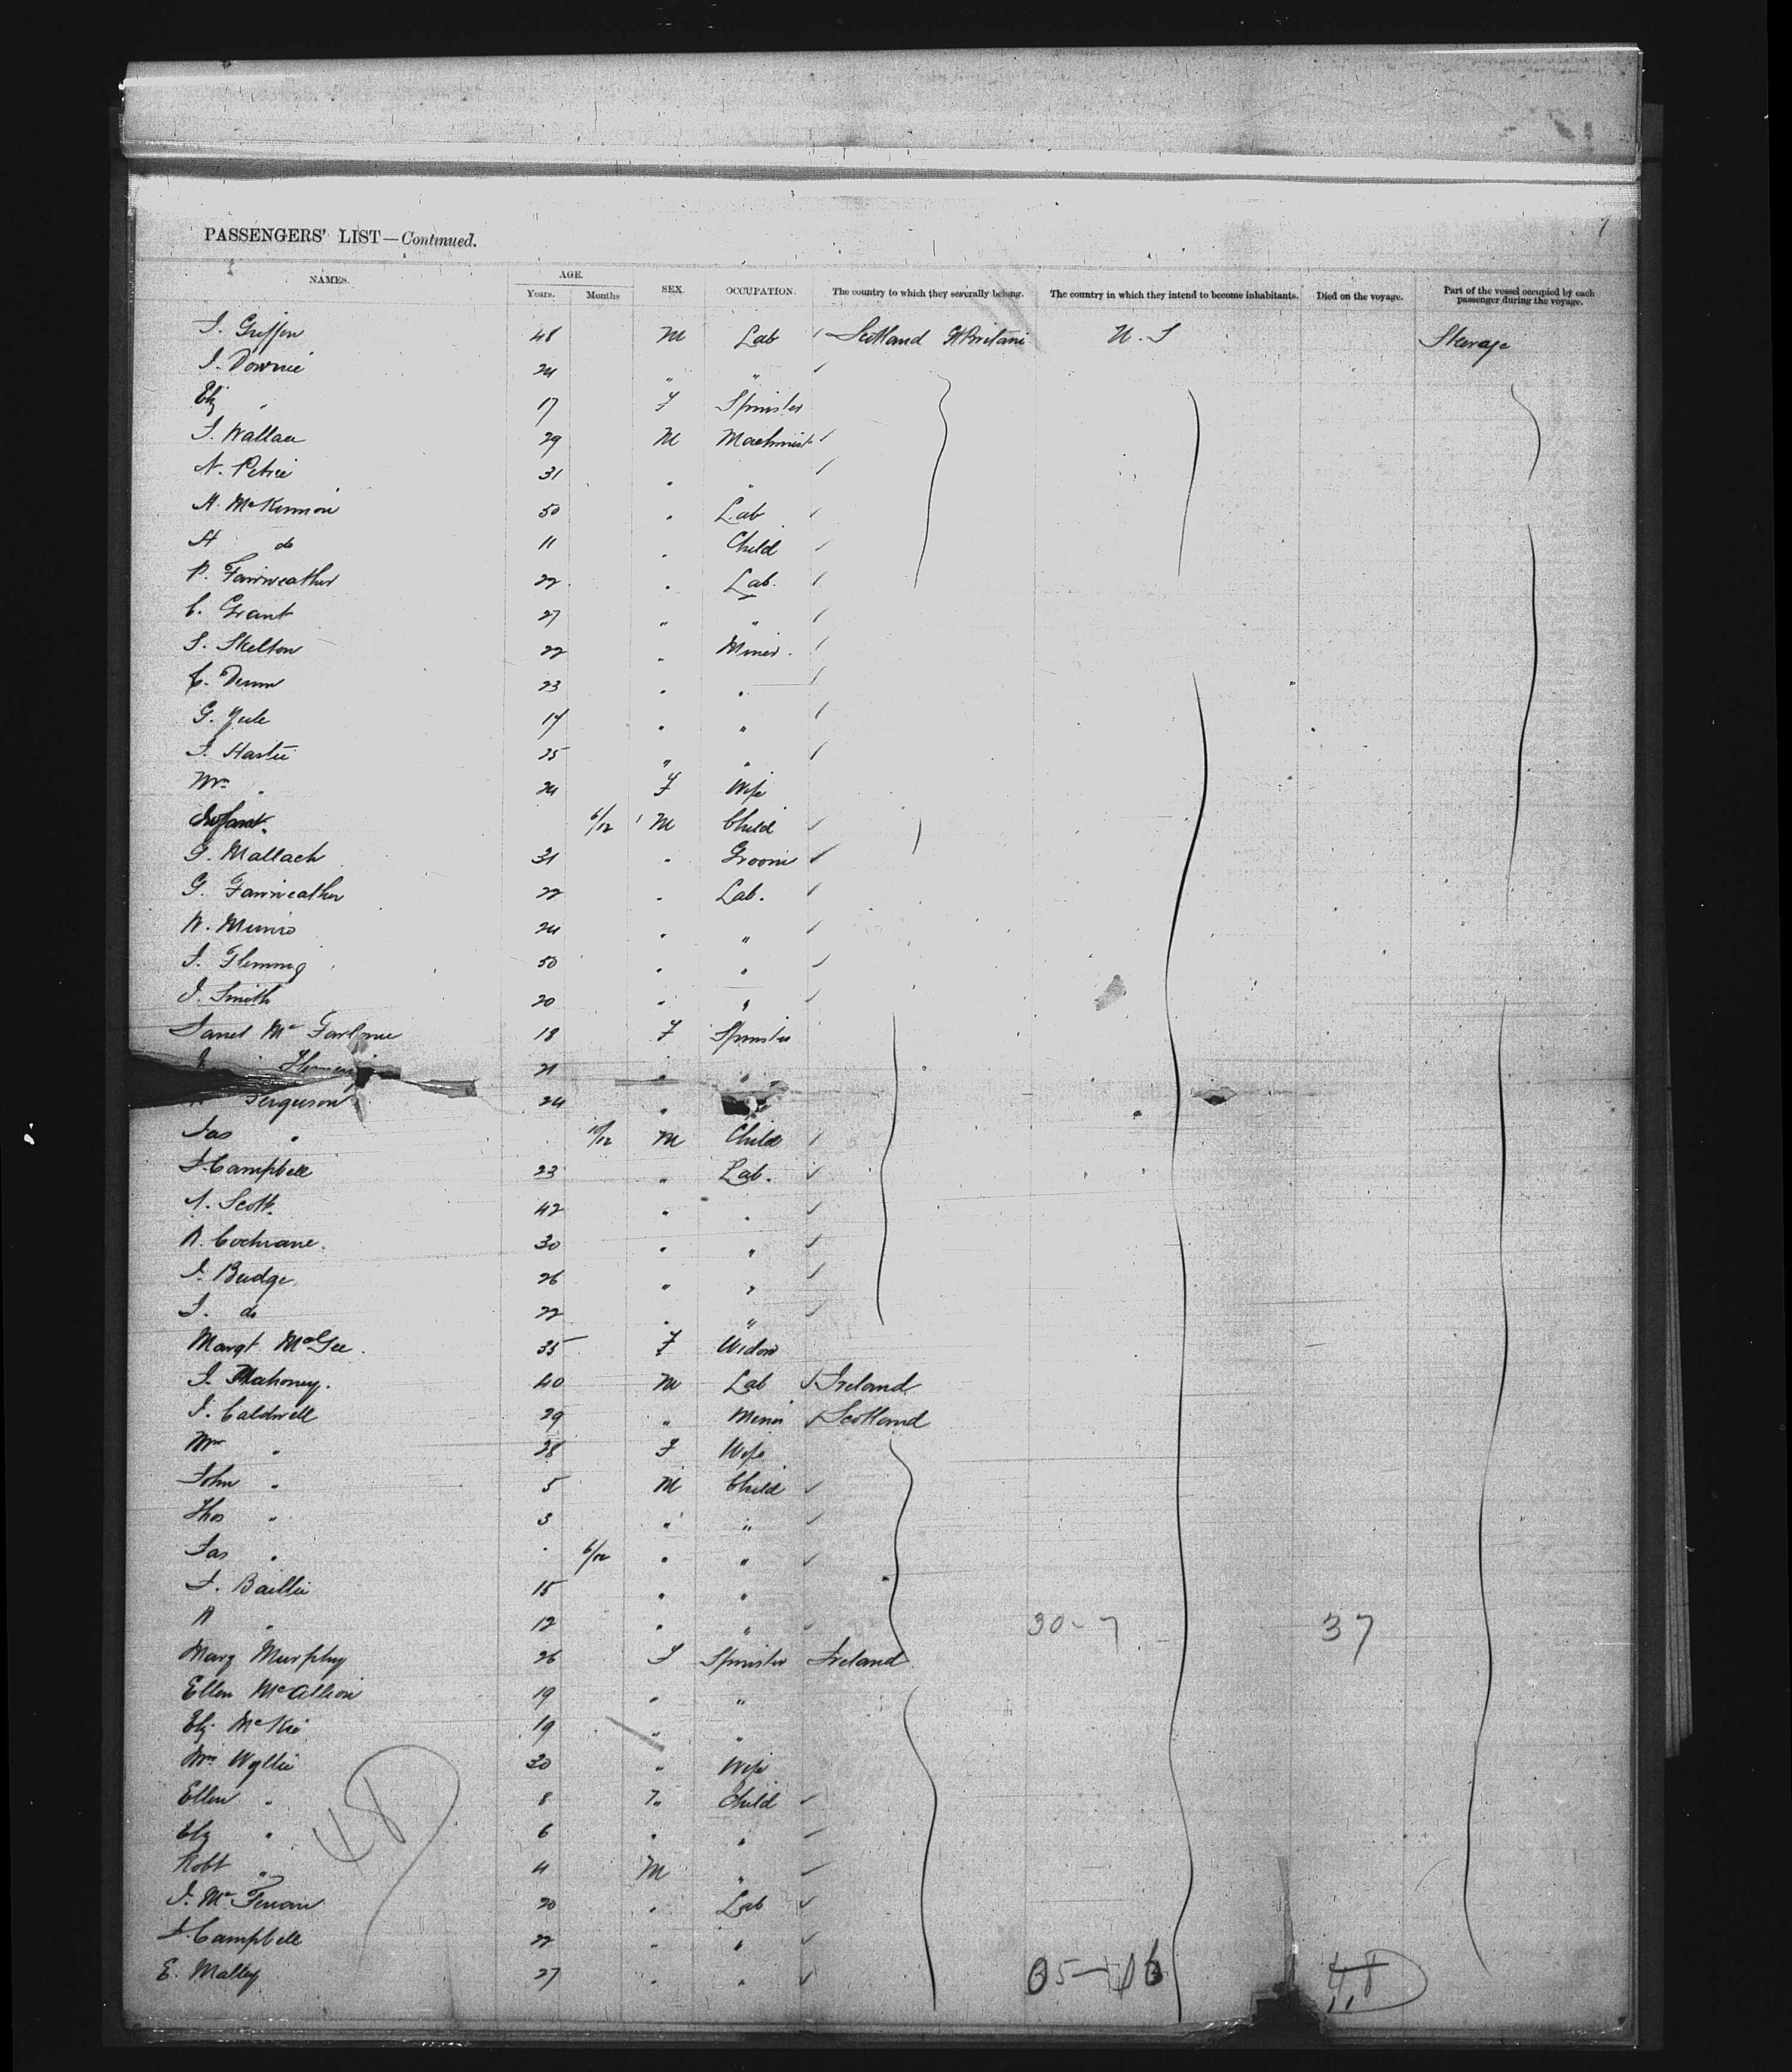 7
PASSENGERS' LIST—Continued.
NAMES. AGE. Years. Months SEX. OCCUPATION. The country to which they severally belong. The country in which they intend to become inhabitants. Died on the voyage. Part of the vessel occupied by each passenger during the voyage.
J. Griffen 48 M Lab Scotland Gt Britain U.S Steerage
J. Downie 24 " "
Eliz " 17 F Spinster
J. Wallace 29 M Machinist
N. Petrie 31 " "
A. McKinnon 50 " Lab
A do 11 " Child
P. Fairweather 22 " Lab.
C. Grant 27 " "
S. Skelton 22 " Miner.
C. 23 " "
G. Yule 17 " "
J. Hastie 25 " "
Mrs " 24 F Wife
Infant. 6/12 M Child
G. Mallach 31 " Groom
G. Fairweather 22 " Lab.
W. Munro 24 " "
J. Fleming 50 " "
J. Smith 20 " "
Janet Mc Farlane 18 F Spinster
21 " "
Ferguson 24 "
Jas " 10/12 M Child
J. Campbell 23 " Lab.
A. Scott. 42 " "
R. Cochrane. 30 " "
J. Budge. 26 " "
J. do 22 " "
Margt McGee. 35 F Widow
J. Mahoney. 40 M Lab Ireland
J. Caldwell 29 " Miner Scotland
Mrs " 28 F Wife
John " 5 M Child
Thos " 3 " "
Jas " 6/12 " "
J. Baillie 15 " "
R " 12 " " 30-7 37
Mary Murphy 26 F Spinster Ireland
Ellen McAllion 19 " "
Eliz. McKie 19 " "
Mrs Wyllie 30 " Wife
Ellen " 8 F" Child
Eliz " 6 " "
48
Robt " 4 M "
J. Mc 20 " Lab
J. Campbell 22 " "
E. Malley 27 " " 48